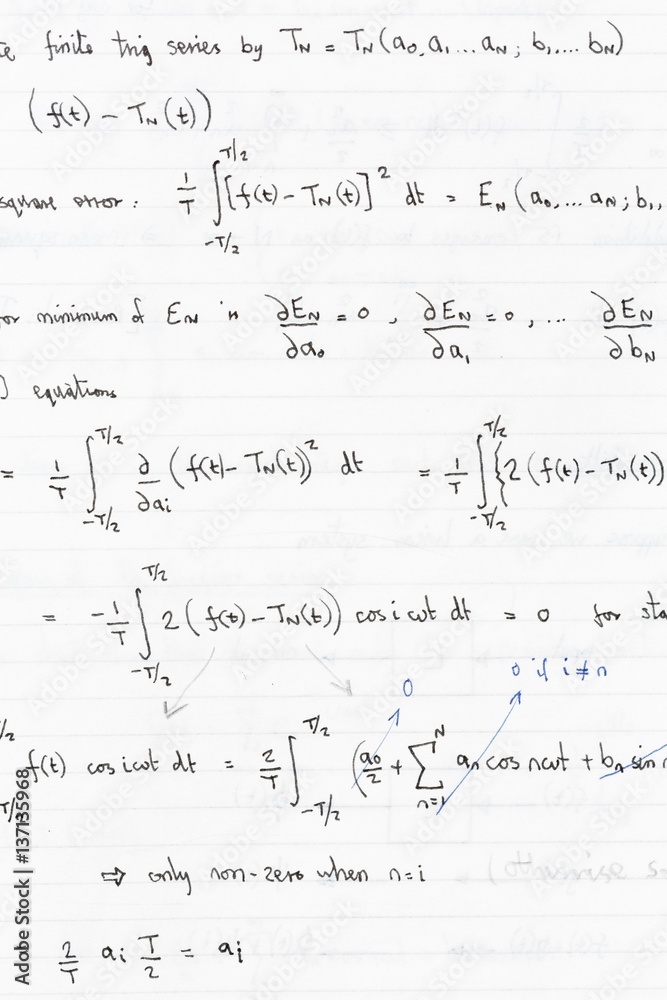 te finite trig series by T_N = T_N(a_0, a_1 ... a_N ; b_1, ... b_N)
(f(t) - T_N(t))
square error : 1/T ∫_{-T/2}^{T/2} [f(t) - T_N(t)]^2 dt = E_N (a_0, ... a_N ; b_1,
or minimum of E_N is ∂E_N/∂a_0 = 0 , ∂E_N/∂a_1 = 0 , ... ∂E_N/∂b_N
) equations
= 1/T ∫_{-T/2}^{T/2} ∂/∂a_i (f(t) - T_N(t))^2 dt = 1/T ∫_{-T/2}^{T/2} {2 (f(t) - T_N(t))
= -1/T ∫_{-T/2}^{T/2} 2 (f(t) - T_N(t)) cos i ωt dt = 0 for sta
0 0 if i ≠ n
f(t) cos i ωt dt = 2/T ∫_{-T/2}^{T/2} (a_0/2 + ∑_{n=1}^{N} a_n cos nωt + b_n sin n
⇒ only non-zero when n=i
2/T a_i T/2 = a_i
Adobe Stock | #137135968